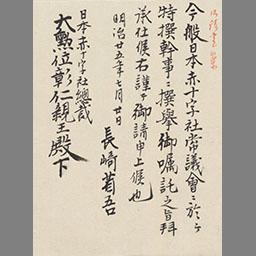 今般日本赤十字社常議會ニ於テ
特撰幹事ニ撰擧御嘱託之旨拜
承仕候右謹テ御請申上候也
明治廿五年七月廿日
長崎省吾
日本赤十字社總裁
大勲位彰仁親王殿下